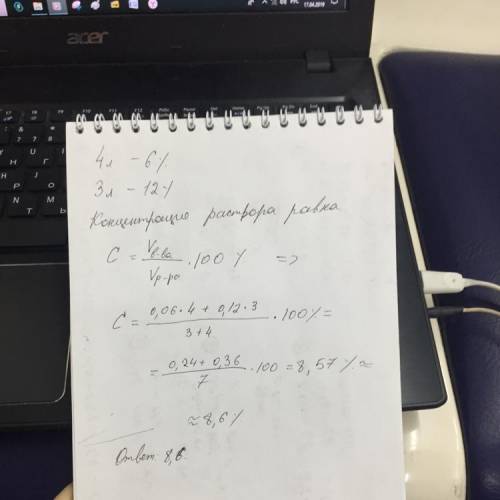 acer
РУС
17.04.2019
4л - 6%
3л - 12%
Концентрацие раствора равна
C = Vв-ва / Vр-ра · 100 % =>
C = 0,06·4 + 0,12·3 / 3+4 · 100% =
= 0,24 + 0,36 / 7 · 100 = 8,57 % ≈
≈ 8,6 %
Ответ: 8,6